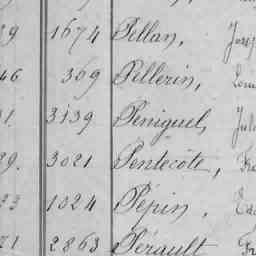 29 1674 Pellan,
46 369 Pellerin,
1. 3139 Péniguel,
29. 3021 Pentecôte,
23 1024 Pépin,
71 2863 Pérault